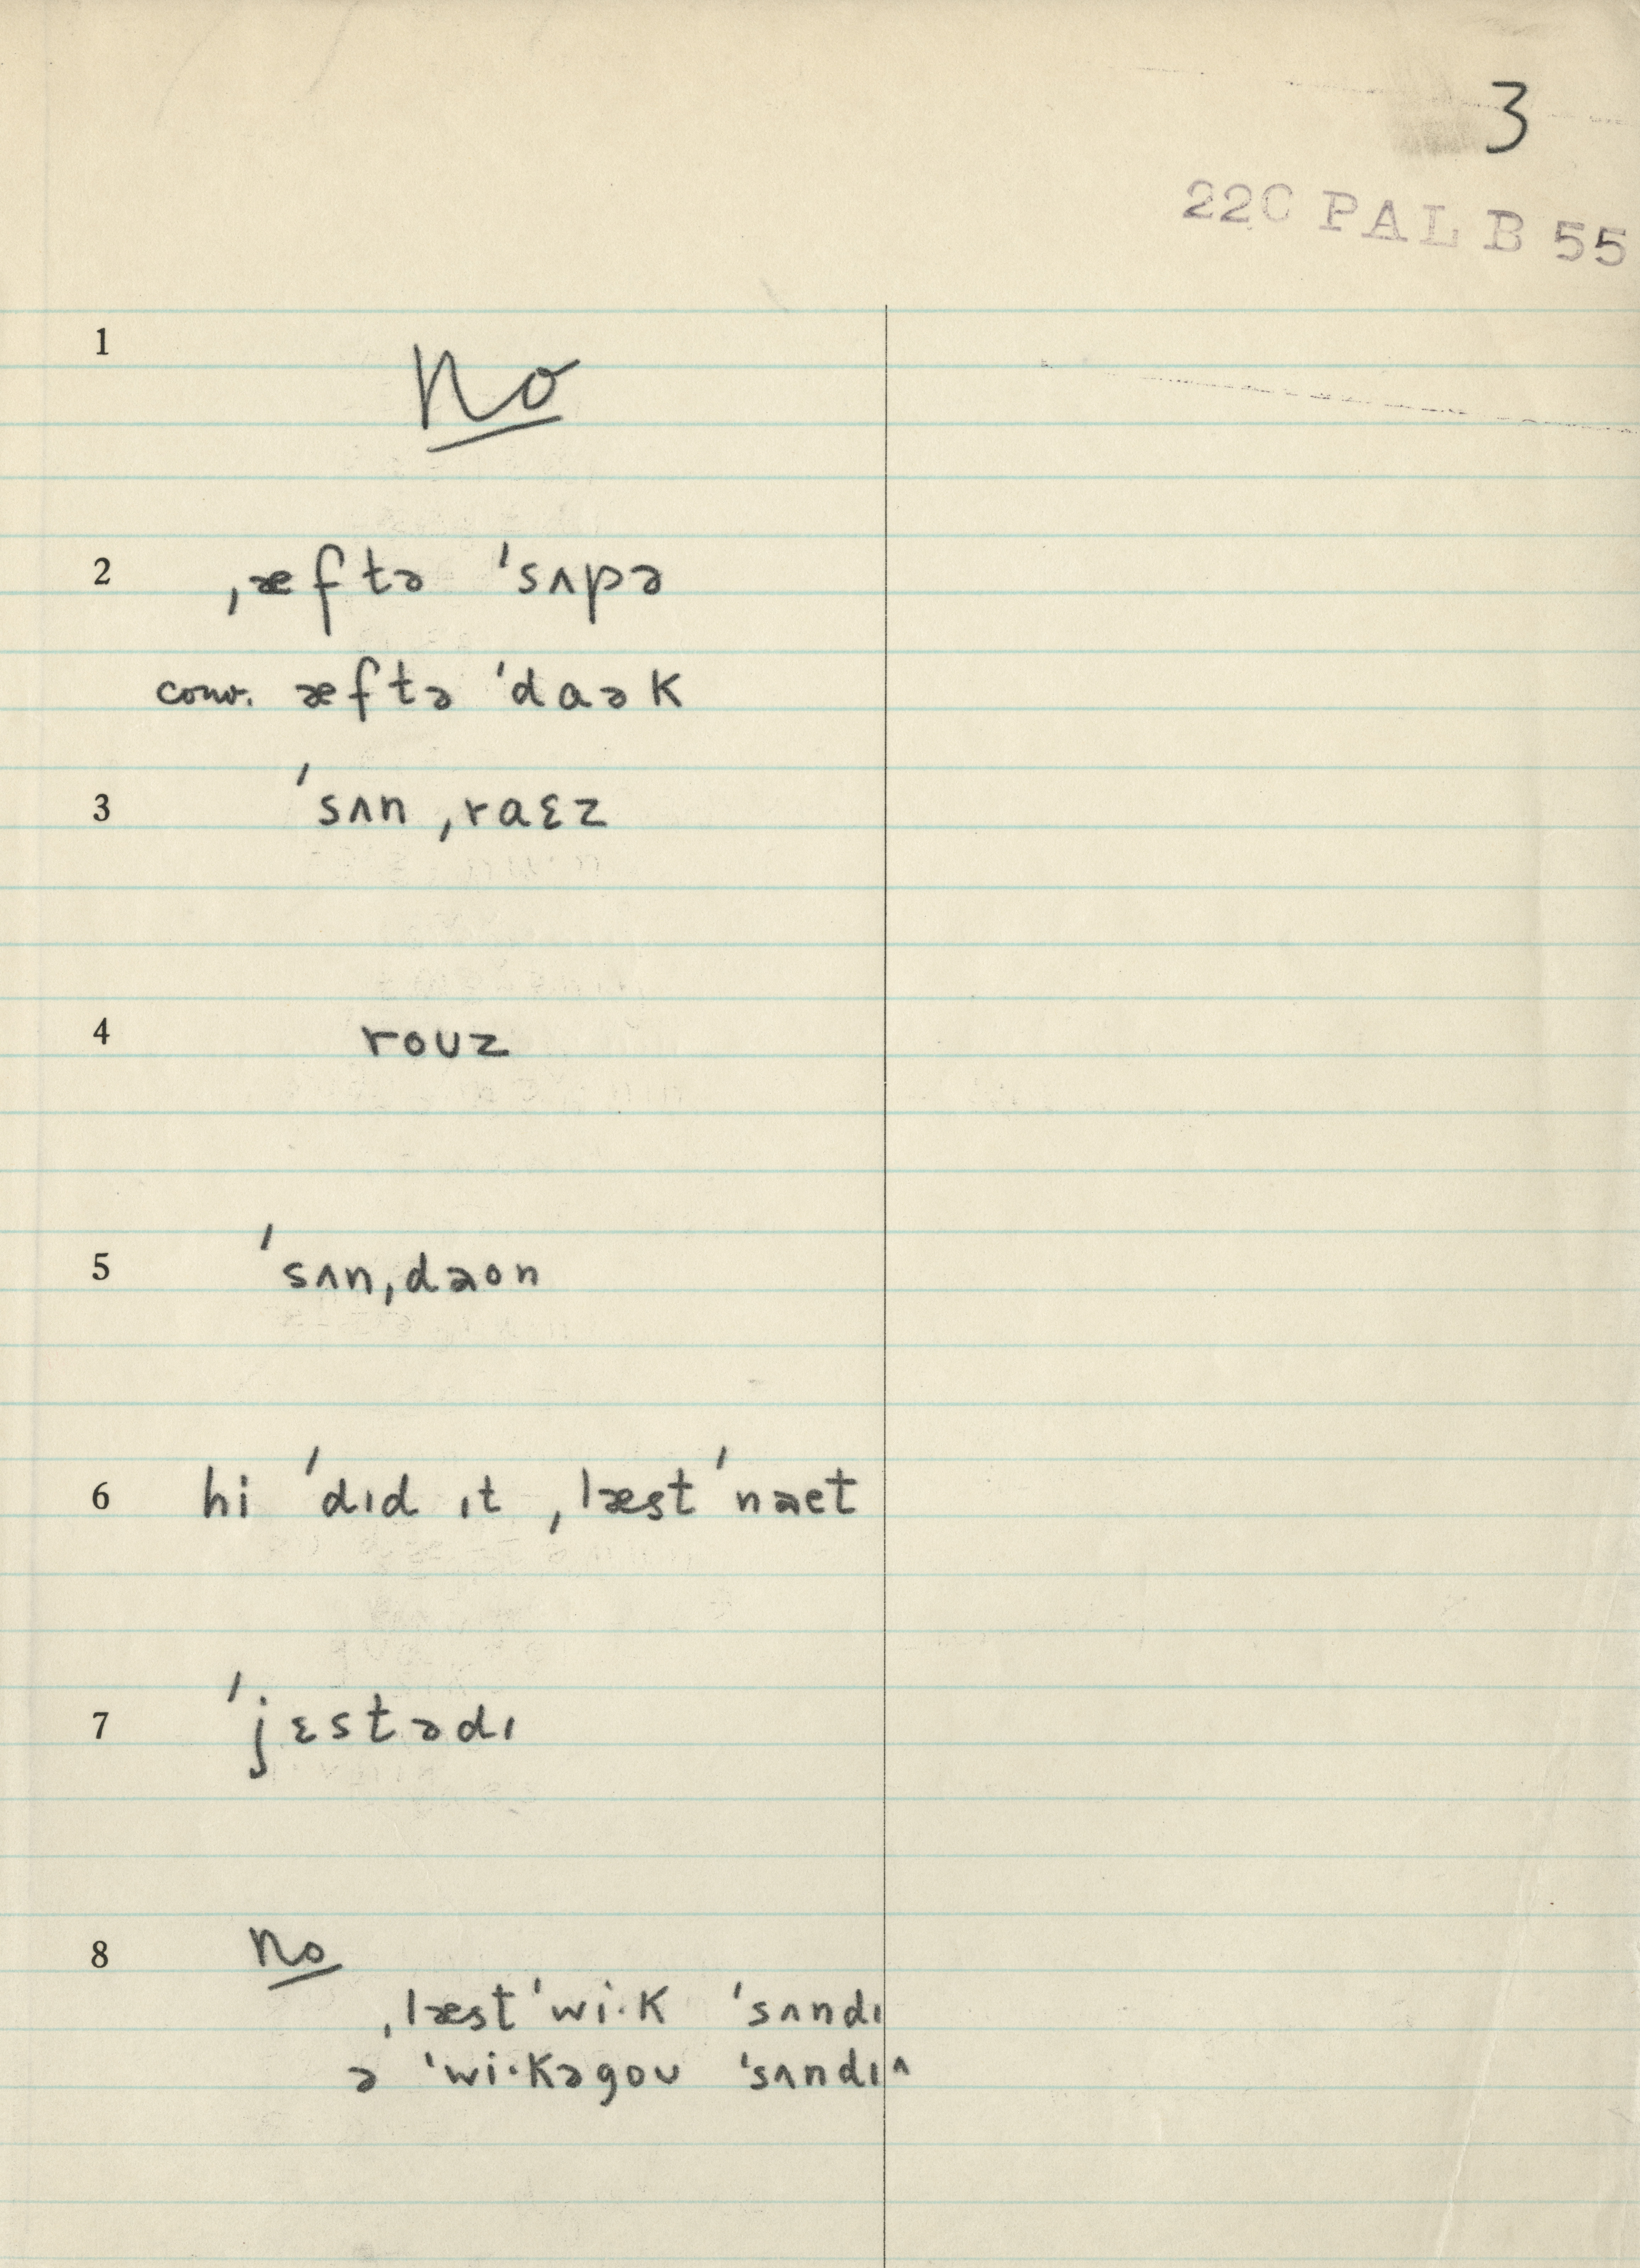 3
220 PAL B 55
1 No
2 ˌæftə ˈsʌpə
conv. æftə ˈdaək
3 ˈsʌn ˌraɛz
4 roʊz
5 ˈsʌnˌdaon
6 hi ˈdɪd ɪt ˌlæst ˈnaet
7 ˈjɛstədɪ
8 No
ˌlæst ˈwi·k ˈsʌndɪ
ə ˈwi·kəgoʊ ˈsʌndɪ^